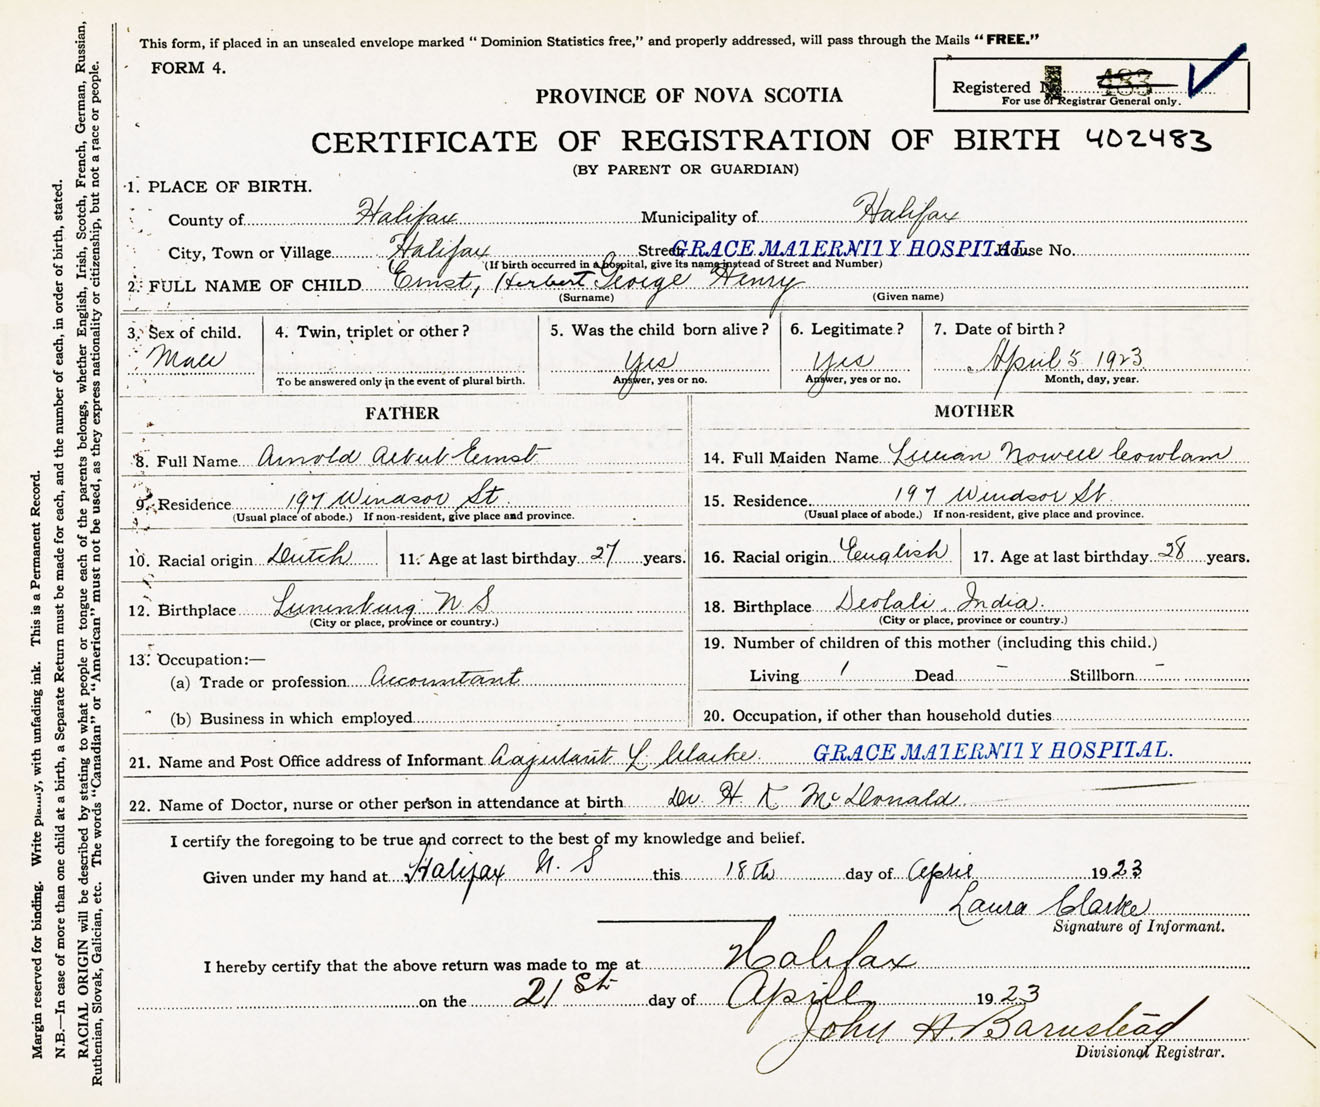 This form, if placed in an unsealed envelope marked "Dominion Statistics free," and properly addressed, will pass through the Mails "FREE."
FORM 4.
Registered 483
For use of Registrar General only.
PROVINCE OF NOVA SCOTIA
CERTIFICATE OF REGISTRATION OF BIRTH 402483
(BY PARENT OR GUARDIAN)
1. PLACE OF BIRTH.
County of Halifax Municipality of Halifax
City, Town or Village Halifax Street GRACE MATERNITY HOSPITAL House No.
(If birth occurred in a hospital, give its name instead of Street and Number)
2. FULL NAME OF CHILD Ernst, Herbert George Henry
(Surname) (Given name)
3. Sex of child. 4. Twin, triplet or other? 5. Was the child born alive? 6. Legitimate? 7. Date of birth?
Male Yes Yes April 5 1923
To be answered only in the event of plural birth. Answer, yes or no. Answer, yes or no. Month, day, year.
FATHER MOTHER
8. Full Name Arnold Albert Ernst 14. Full Maiden Name Lillian Nowell Cowlam
9. Residence 197 Windsor St. 15. Residence 197 Windsor St
(Usual place of abode.) If non-resident, give place and province. (Usual place of abode.) If non-resident, give place and province.
10. Racial origin Dutch 11. Age at last birthday 27 years. 16. Racial origin English 17. Age at last birthday 28 years.
12. Birthplace Lunenburg N S 18. Birthplace Deolali, India.
(City or place, province or country.) (City or place, province or country.)
19. Number of children of this mother (including this child.)
13. Occupation:—
(a) Trade or profession Accountant Living 1 Dead – Stillborn –
(b) Business in which employed 20. Occupation, if other than household duties
21. Name and Post Office address of Informant Adjutant L Clarke. GRACE MATERNITY HOSPITAL.
22. Name of Doctor, nurse or other person in attendance at birth Dr. H K McDonald.
I certify the foregoing to be true and correct to the best of my knowledge and belief.
Given under my hand at Halifax N. S this 18th day of April 1923
Laura Clarke
Signature of Informant.
I hereby certify that the above return was made to me at Halifax
on the 21st day of April 1923
John A. Barnstead
Divisional Registrar.
Margin reserved for binding. Write plainly, with unfading ink. This is a Permanent Record.
N.B.—In case of more than one child at a birth, a Separate Return must be made for each, and the number of each, in order of birth, stated.
RACIAL ORIGIN will be described by stating to what people or tongue each of the parents belongs, whether English, Irish, Scotch, French, German, Russian,
Ruthenian, Slovak, Galician, etc. The words "Canadian" or "American" must not be used, as they express nationality or citizenship, but not a race or people.